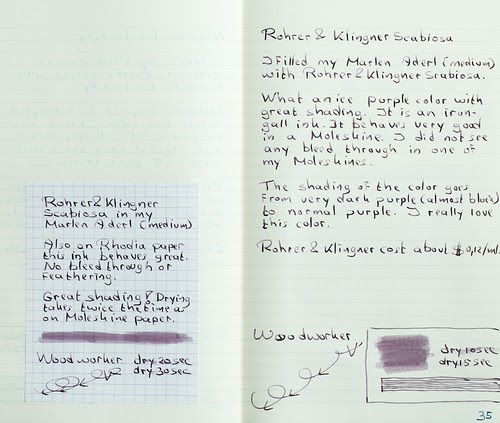 Rohrer & Klingner
Scabiosa in my
Marlen Aderl (medium)
Also on Rhodia paper
this ink behaves great.
No bleed through or
Feathering.
Great shading! Drying
takes twice the time as
on Moleskine paper.
Woodworker dry 20 sec
dry 30 sec
Rohrer & Klingner Scabiosa
I filled my Marlen Aderl (medium)
with Rohrer & Klingner Scabiosa.
What a nice purple color with
great shading. It is an iron-
gall ink. It behaves very good
in a Moleskine. I did not see
any bleed through in one of
my Moleskines.
The shading of the color goes
From very dark purple (almost black)
to normal purple. I really love
this color.
Rohrer & Klingner cost about $ 0,12/ml.
Woodworker
dry 10 sec
dry 15 sec
35